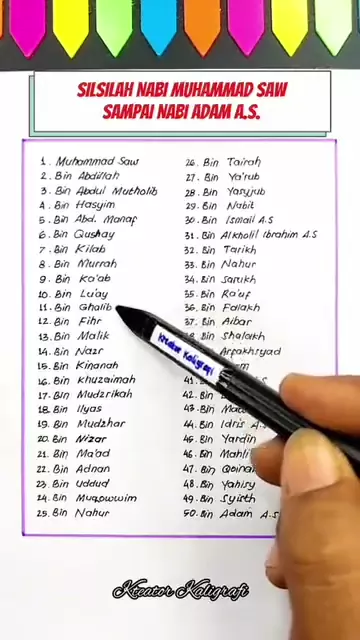 SILSILAH NABI MUHAMMAD SAW
SAMPAI NABI ADAM A.S.
1. Muhammad Saw
2. Bin Abdillah
3. Bin Abdul Mutholib
4. Bin Hasyim
5. Bin Abd. Manaf
6. Bin Qushay
7. Bin Kilab
8. Bin Murrah
9. Bin Ka'ab
10. Bin Lu'ay
11. Bin Ghalib
12. Bin Fihr
13. Bin Malik
14. Bin Nazr
15. Bin Kinanah
16. Bin Khuzaimah
17. Bin Mudzrikah
18. Bin Ilyas
19. Bin Mudzhar
20. Bin Nizar
21. Bin Ma'ad
22. Bin Adnan
23. Bin Uddud
24. Bin Muqowwim
25. Bin Nahur
26. Bin Tairah
27. Bin Ya'rub
28. Bin Yasyjub
29. Bin Nabit
30. Bin Ismail A.S
31. Bin Alkholil Ibrahim A.S
32. Bin Tarikh
33. Bin Nahur
34. Bin Sarukh
35. Bin Ra'uf
36. Bin Falakh
37. Bin Aibar
Bin Shalakh
Arpakhsyad
41.
42. Bin
43. Bin
44. Bin Idris A.
45. Bin Yardin
46. Bin Mahli
47. Bin Qoinan
48. Bin Yahisy
49. Bin Syisth
50. Bin Adam A.S
Kreator Kaligrafi
Kreator Kaligrafi